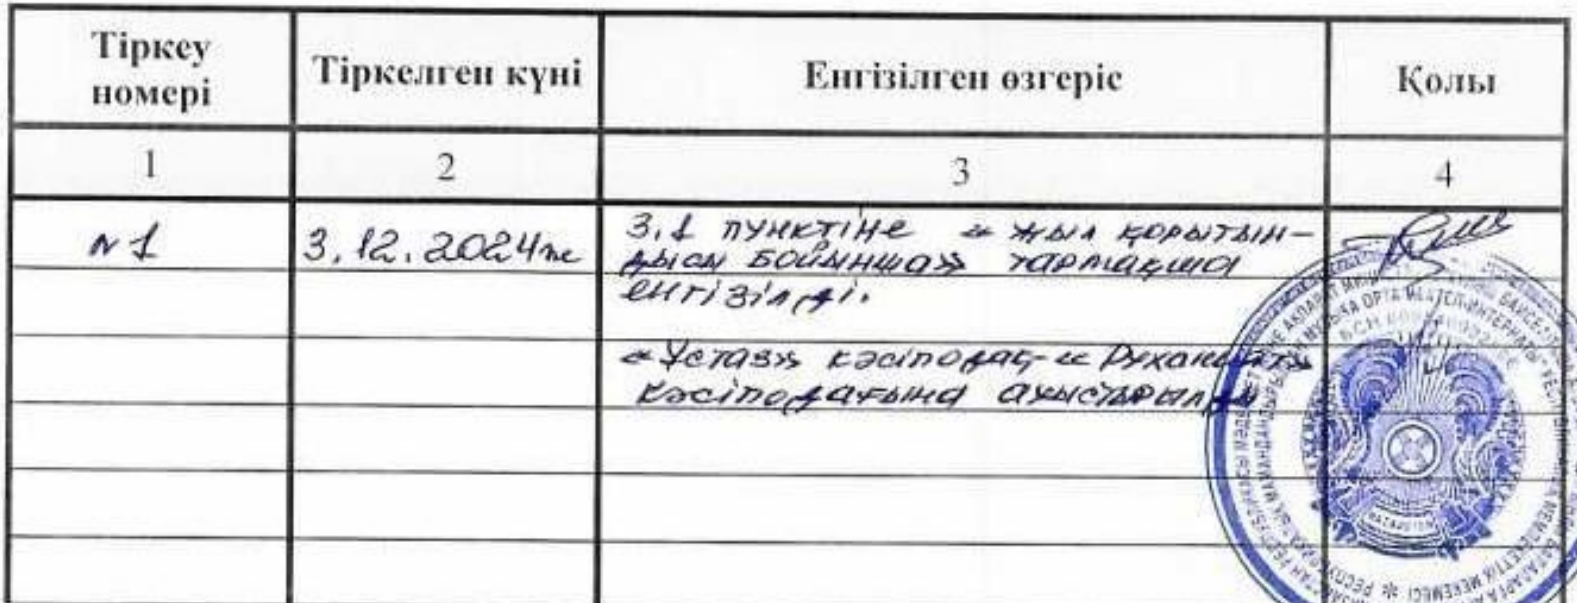 Тіркеу номері
Тіркелген күні
Енгізілген өзгеріс
Қолы
1
2
3
4
№1
3.12.2024ж
3.1 пунктіне «жыл қорытын-
дысы бойынша» тармақша
енгізілді.
«Ұстаз» кәсіподақ- «Руханият»
кәсіподағына ауыстырылды